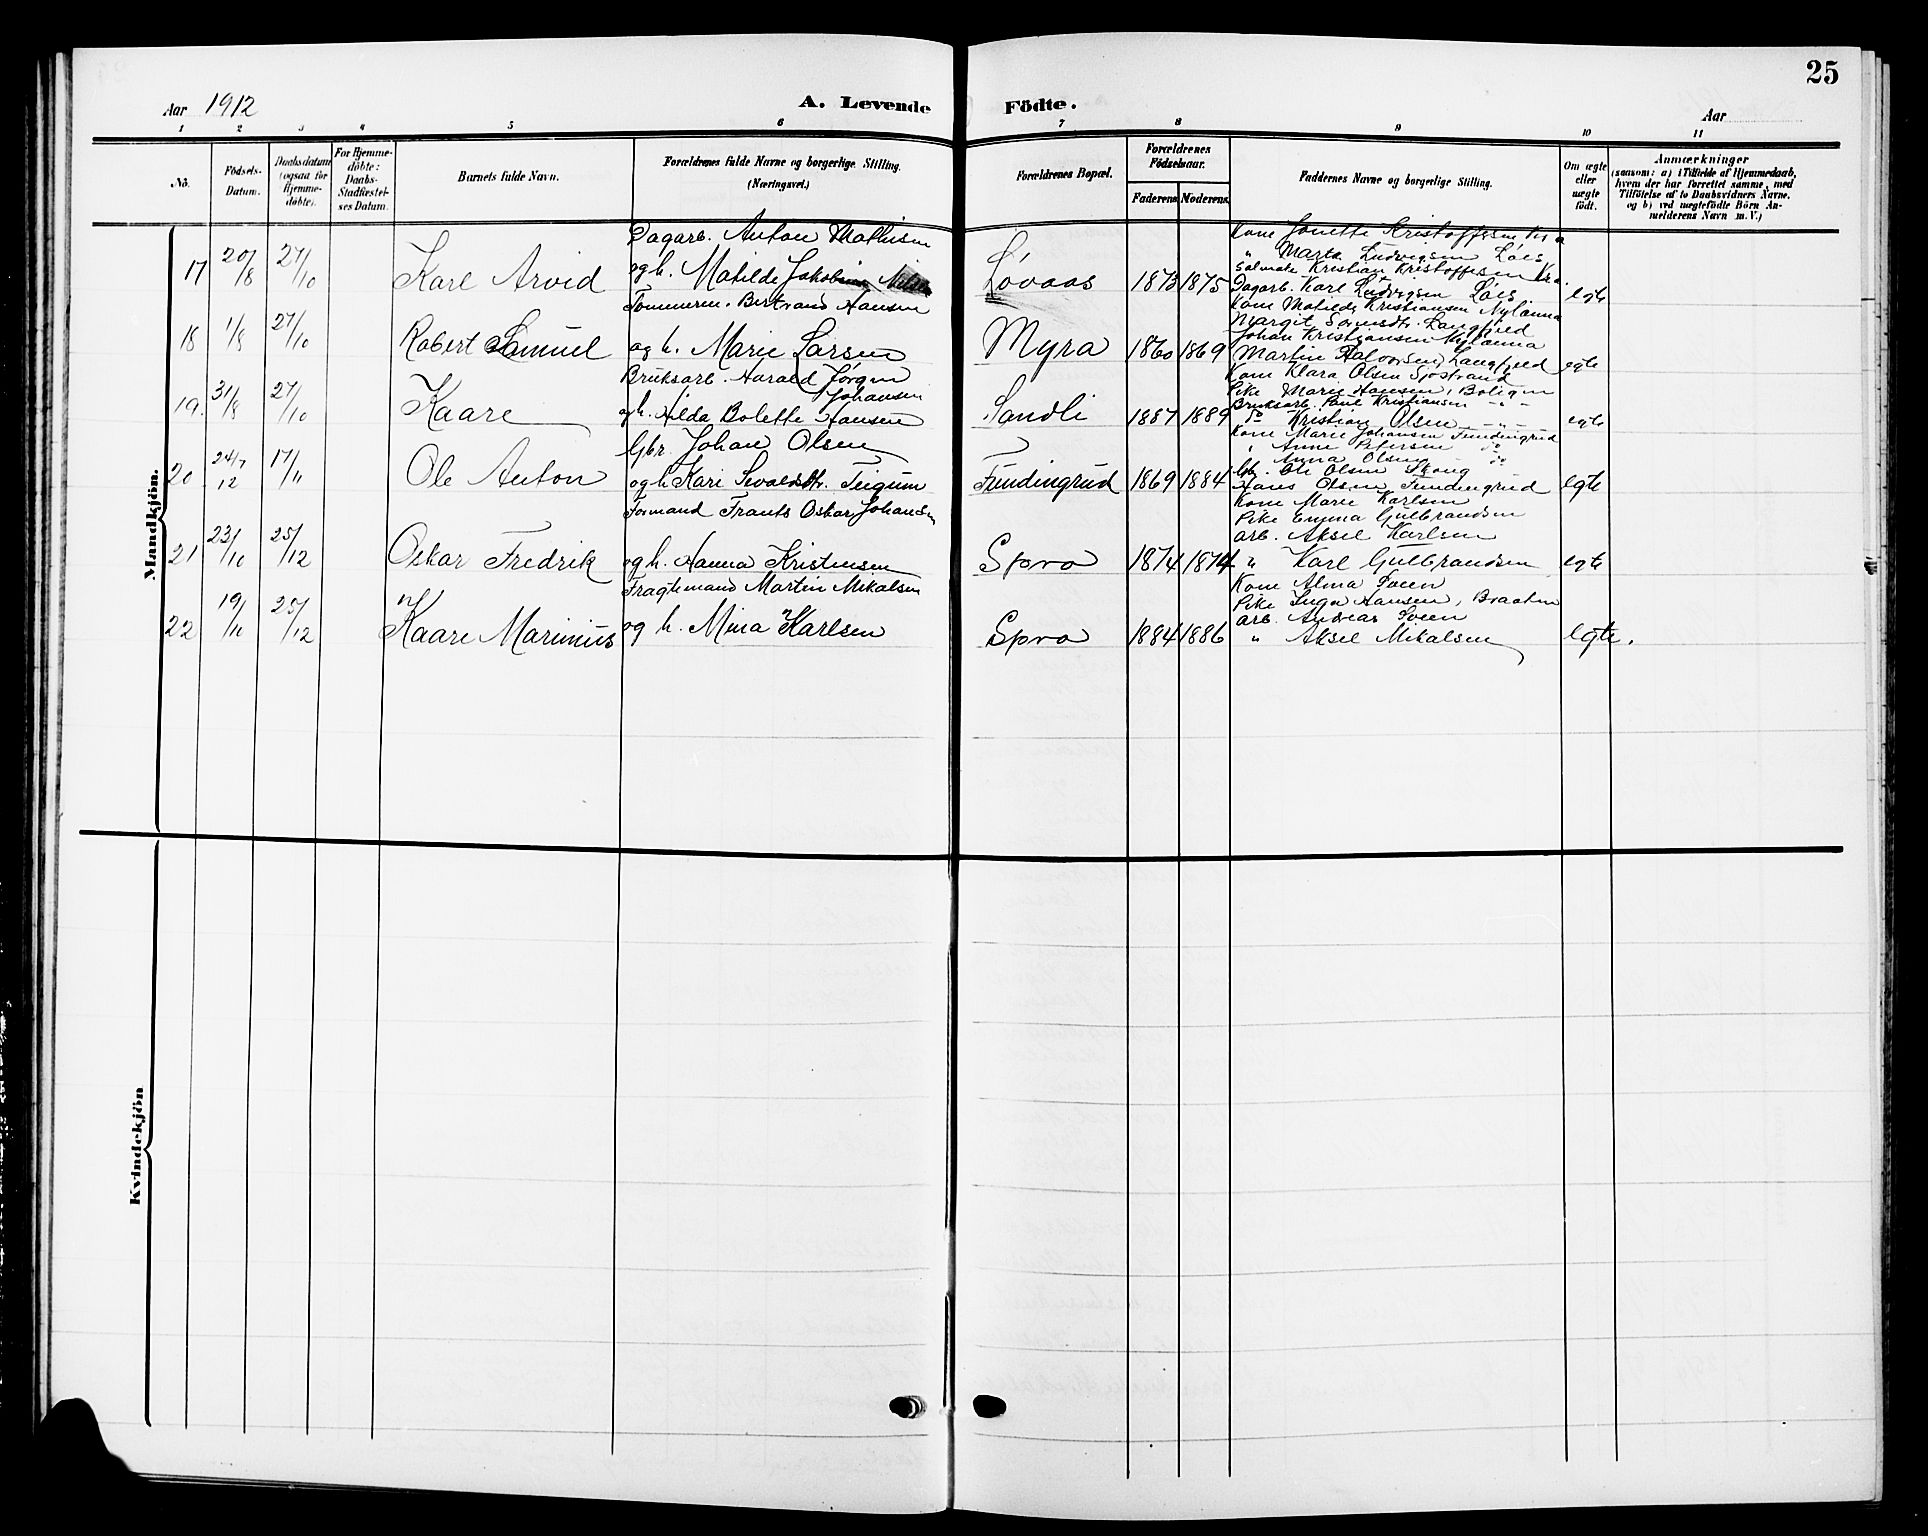 25
Aar 1912
A. Levende Födte.
Aar
1 2 3 4 5 6 7 8 9 10 11
Nö.
Födsels-
Datum.
Daabsdatum
(ogsaa for
Hjemme-
døbte).
For Hjemme-
döbte:
Daabs-
Stadfæstel-
ses Datum.
Barnets fulde Navn.
Forældrenes fulde Navne og borgerlige Stilling.
(Næringsvei.)
Forældrenes Bopæl.
Forældrenes
Födselsaar.
Faderens
Moderens
Faddernes Navne og borgerlige Stilling.
Om ægte
eller
uægte
født.
Anmærkninger
(saasom: a) i Tilfælde af Hjemmedaab,
hvem der har forrettet samme, med
Tilföielse af to Daabsvidners Navne,
og b) ved uægtefødte Börn An-
melderens Navn m. V.)
Mandkjön.
17 20/8 27/10 Karl Arvid
Dagarb. Anton Mathisen
og h. Matilde Jakobine
Løvaas 1873 1875
Kone Jonette Kristoffersen Kr.a
" Marta Ludvigsen Løes
Salmak. Kristian Kristoffersen Kr.a
Dagarb. Karl Ludvigsen Løes
egte
18 1/8 27/10 Robert Samuel
Tømmerm. Bertrand Hansen
og h. Marie Larsen
Myra 1860 1869
Kone Matilde Kristiansen Nylænna
Margit Langfjeld
Johan Kristiansen Nylænna
Martin Halvorsen, Langfjeld
egte
19. 31/8 27/10 Kaare
Bruksarb. Harald Jørgen
Johansen
og h. Hilda Bolette Hansen
Sandli 1887 1889
Kone Klara Olsen Sjøstrand
Pike Marie Hansen, Boligen
Bruksarb. Paul Kristiansen - " -
Do Kristian Olsen - " -
egte
20 24/7 12 17/11 Ole Anton
Gbr. Johan Olsen
og h. Kari Sevaldsdtr. Teigum
Fundingrud 1869 1884
Kone Marie Johansen Fundingrud
" Anne Petersen do
" Anna Olsen do
Gb. Ole Olsen Skoug
Hans Olsen Fundingrud
egte
21 23/10 25/12 Oskar Fredrik
Formand Frants Oskar Johansen
og h. Hanna Kristensen
Spro 1874 1874
Kone Marie Karlsen
Pike Emma Gulbrandsen
arb. Aksel Karlsen
" Karl Gulbrandsen
egte
22 19/10 25/12 Kaare Marinius
Fragtemand Martin Mikalsen
og h. Mina Karlsen
Spro 1884 1886
Kone Alma Sveen
Pike Inga Hansen, Braaten
arb. Andreas Sveen
" Aksel Mikalsen
egte.
Kvindekjön